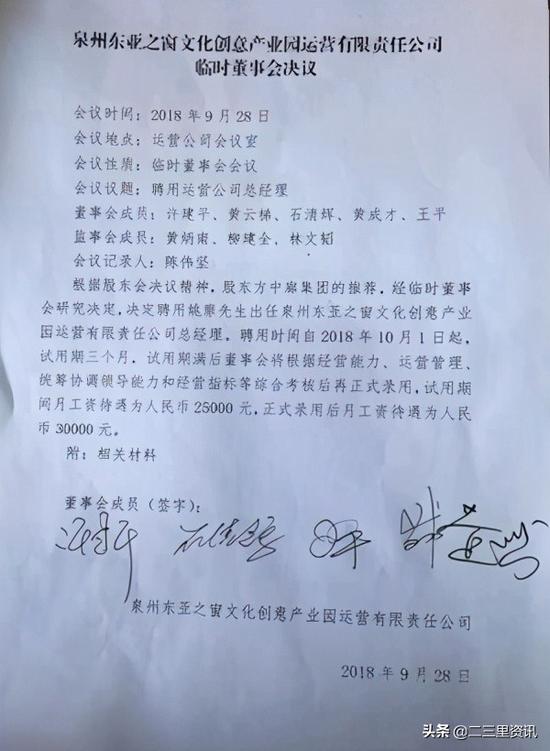 泉州东亚之窗文化创意产业园运营有限责任公司
临时董事会决议
会议时间：2018年9月28日
会议地点：运营公司会议室
会议性质：临时董事会会议
会议议题：聘用运营公司总经理
董事会成员：许建平、黄云梯、石清辉、黄成才、王平
监事会成员：黄炳南、柳建全、林文韬
会议记录人：陈伟坚
根据股东会决议精神，股东方中廊集团的推荐，经临时董事
会研究决定，决定聘用姚廉先生出任泉州东亚之窗文化创意产业
园运营有限责任公司总经理。聘用时间自2018年10月1日起，
试用期三个月。试用期满后董事会将根据经营能力、运营管理、
统筹协调领导能力和经营指标等综合考核后再正式录用，试用期
间月工资待遇为人民币25000元，正式录用后月工资待遇为人民
币30000元。
附：相关材料
董事会成员（签字）：
泉州东亚之窗文化创意产业园运营有限责任公司
2018年9月28日
头条@二三里资讯